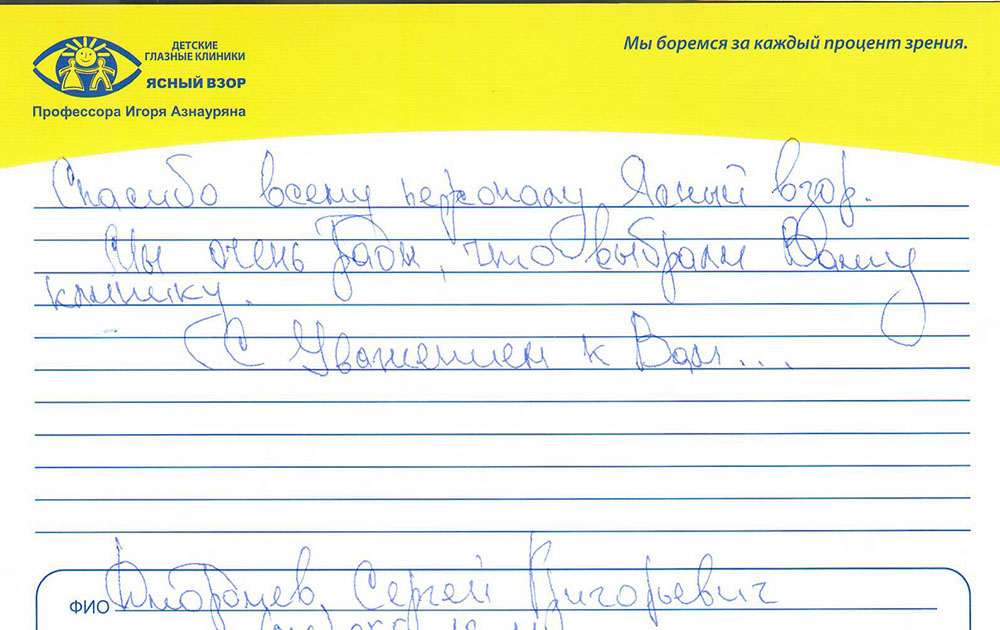 ДЕТСКИЕ
ГЛАЗНЫЕ КЛИНИКИ
ЯСНЫЙ ВЗОР
Профессора Игоря Азнауряна
Мы боремся за каждый процент зрения.
Спасибо всему персоналу Ясный взор.
Мы очень рады, что выбрали Вашу
клинику.
С Уважением к Вам...
ФИО Сергей Григорьевич